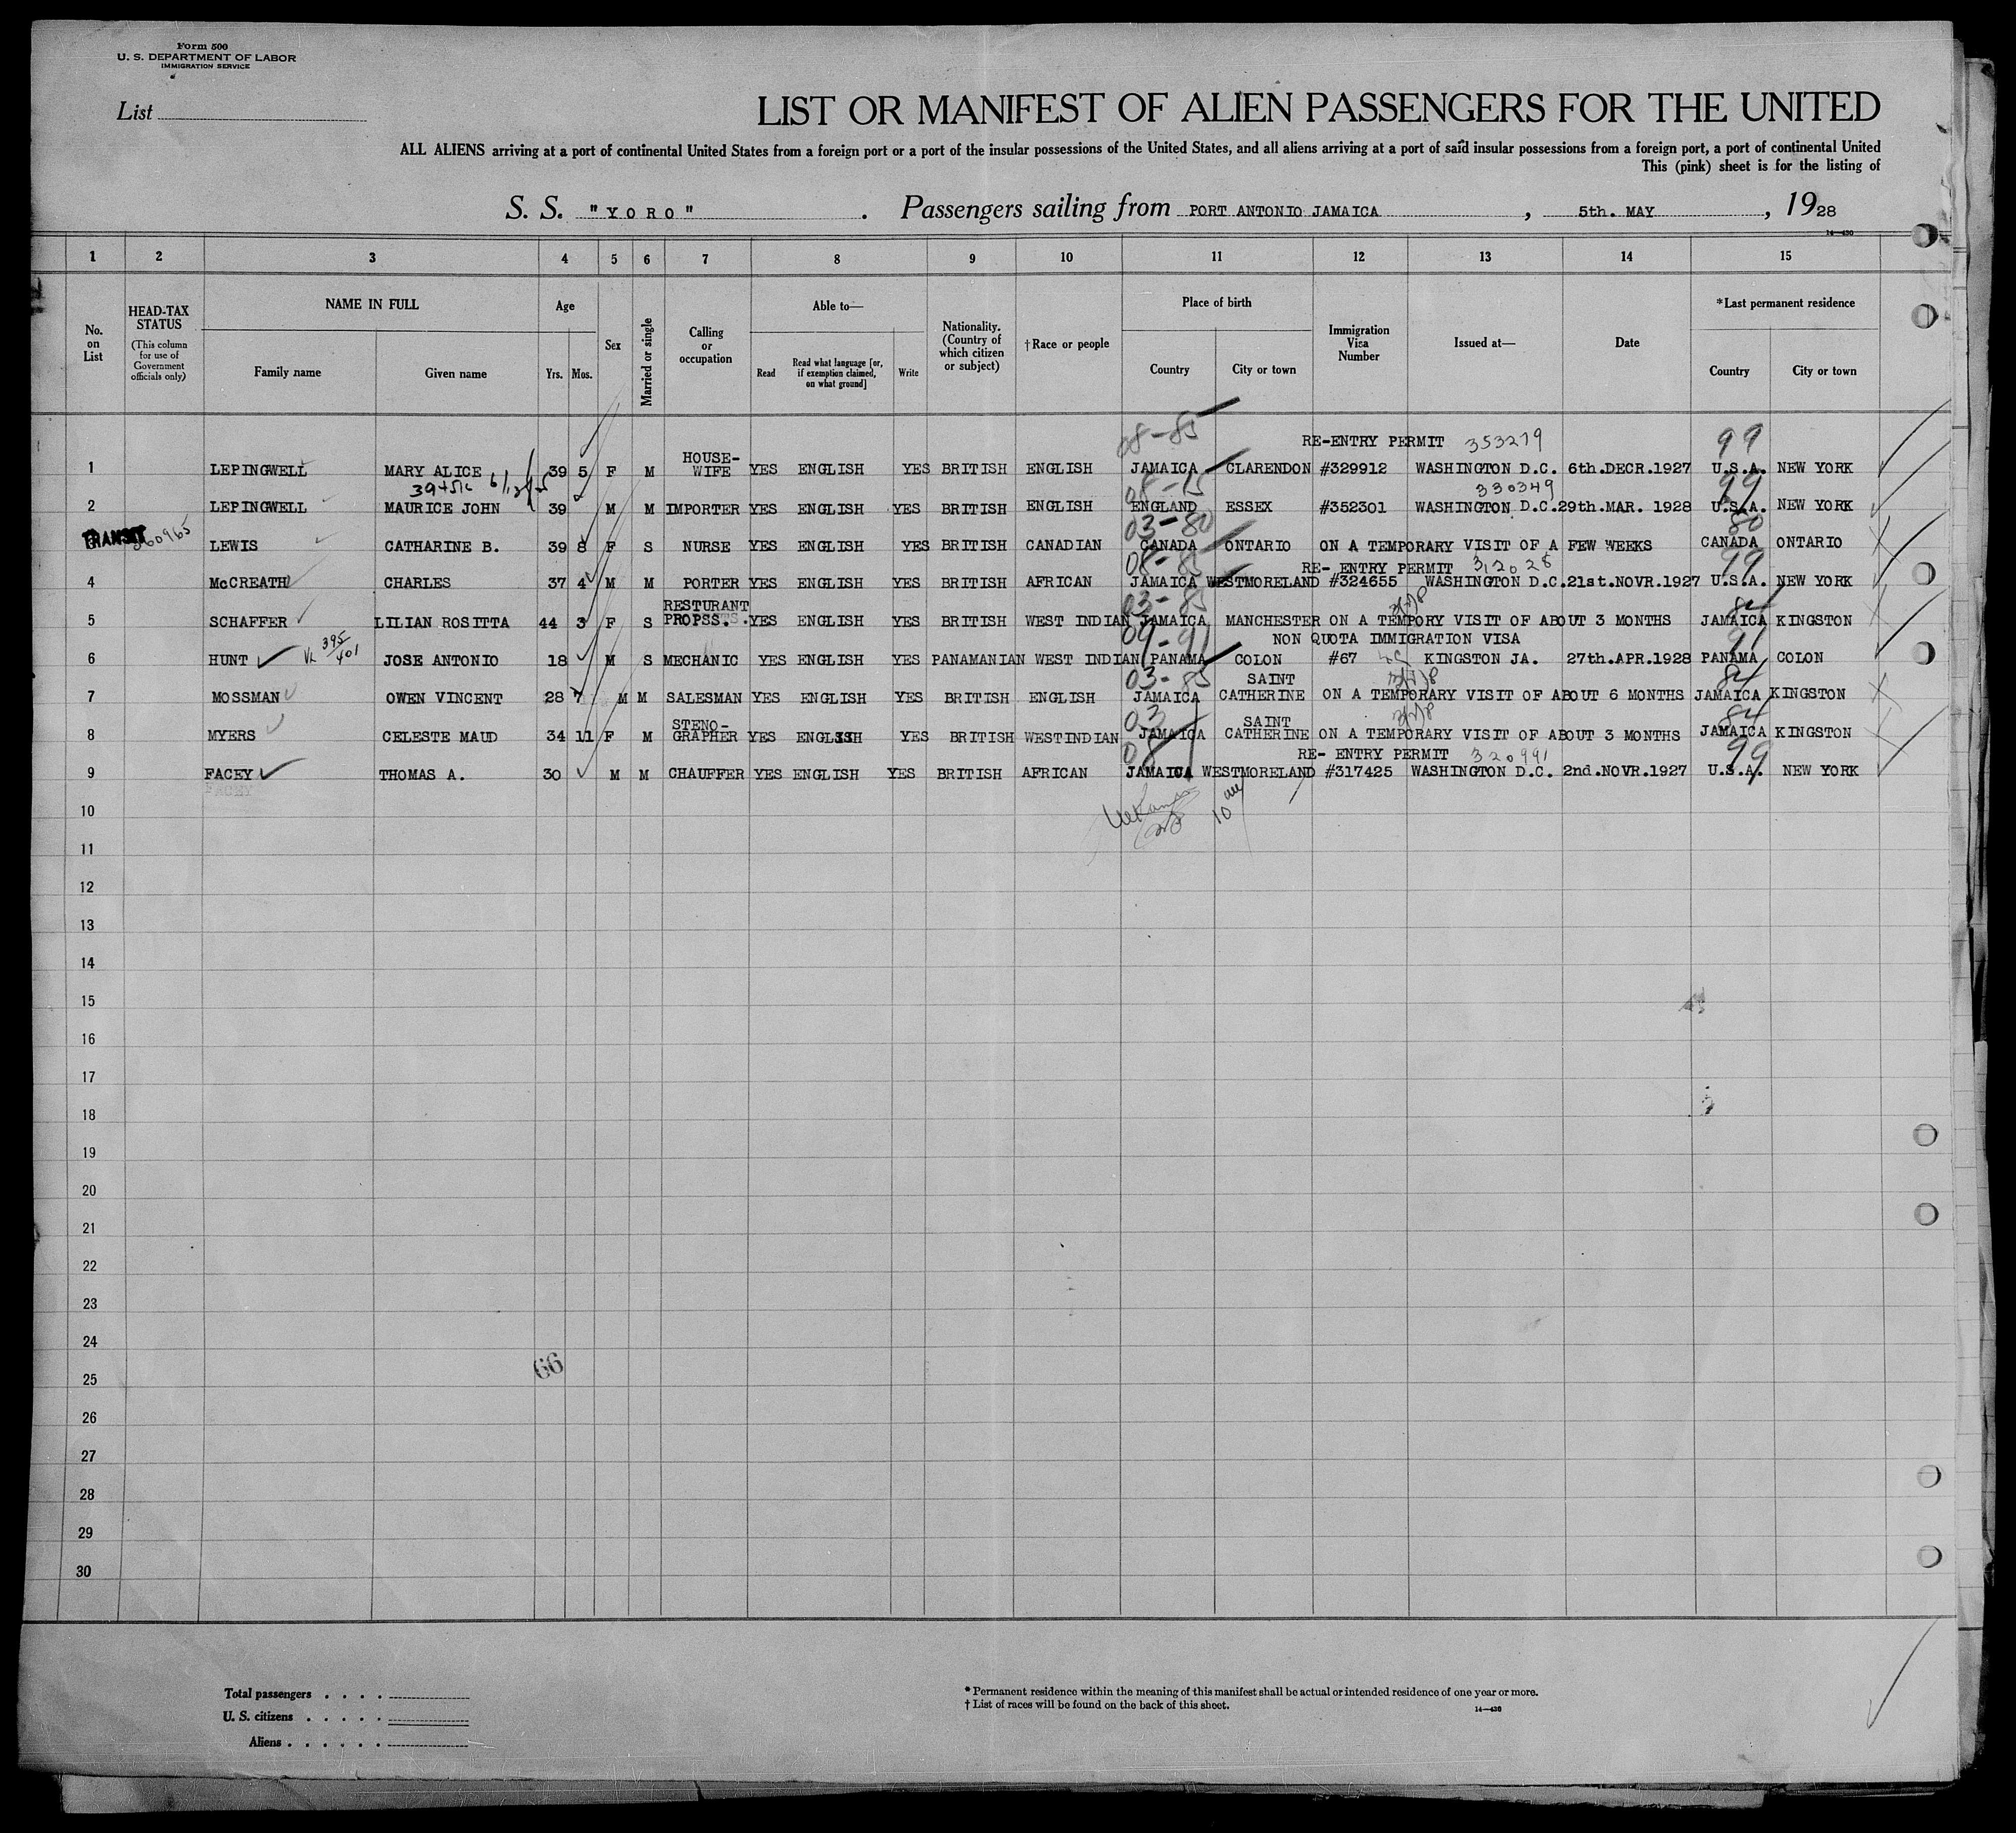 Form 500
U. S. DEPARTMENT OF LABOR
IMMIGRATION SERVICE
List
LIST OR MANIFEST OF ALIEN PASSENGERS FOR THE UNITED
ALL ALIENS arriving at a port of continental United States from a foreign port or a port of the insular possessions of the United States, and all aliens arriving at a port of said insular possessions from a foreign port, a port of continental United
This (pink) sheet is for the listing of
S. S. "YORO" . Passengers sailing from PORT ANTONIO JAMAICA , 5th. MAY , 1928
14—430
1 2 3 4 5 6 7 8 9 10 11 12 13 14 15
No. on List
HEAD-TAX STATUS
(This column for use of Government officials only)
NAME IN FULL
Family name Given name
Age
Yrs. Mos.
Sex
Married or single
Calling or occupation
Able to—
Read
Read what language [or, if exemption claimed, on what ground]
Write
Nationality. (Country of which citizen or subject)
†Race or people
Place of birth
Country City or town
Immigration Visa Number
Issued at—
Date
*Last permanent residence
Country City or town
08-85 RE-ENTRY PERMIT 353279 99
1 LEPINGWELL MARY ALICE 39 5 F M HOUSE-WIFE YES ENGLISH YES BRITISH ENGLISH JAMAICA CLARENDON #329912 WASHINGTON D.C. 6th.DECR.1927 U.S.A. NEW YORK
08-15 330349 99
2 LEPINGWELL MAURICE JOHN 39 M M IMPORTER YES ENGLISH YES BRITISH ENGLISH ENGLAND ESSEX #352301 WASHINGTON D.C.29th.MAR. 1928 U.S.A. NEW YORK
TRANSIT 360965 03-80 80
3 LEWIS CATHARINE B. 39 8 F S NURSE YES ENGLISH YES BRITISH CANADIAN CANADA ONTARIO ON A TEMPORARY VISIT OF A FEW WEEKS CANADA ONTARIO
08-85 RE- ENTRY PERMIT 312028 99
4 McCREATH CHARLES 37 4 M M PORTER YES ENGLISH YES BRITISH AFRICAN JAMAICA WESTMORELAND #324655 WASHINGTON D.C.21st.NOVR.1927 U.S.A. NEW YORK
03-85 84
5 SCHAFFER LILIAN ROSITTA 44 3 F S RESTURANT PROPSS. YES ENGLISH YES BRITISH WEST INDIAN JAMAICA MANCHESTER ON A TEMPORY VISIT OF ABOUT 3 MONTHS JAMAICA KINGSTON
395/401 09-91 NON QUOTA IMMIGRATION VISA 91
6 HUNT JOSE ANTONIO 18 M S MECHANIC YES ENGLISH YES PANAMANIAN WEST INDIAN PANAMA COLON #67 KINGSTON JA. 27th.APR.1928 PANAMA COLON
03-85 84
7 MOSSMAN OWEN VINCENT 28 7 M M SALESMAN YES ENGLISH YES BRITISH ENGLISH JAMAICA SAINT CATHERINE ON A TEMPORARY VISIT OF ABOUT 6 MONTHS JAMAICA KINGSTON
03 84
8 MYERS CELESTE MAUD 34 11 F M STENO-GRAPHER YES ENGLISH YES BRITISH WESTINDIAN JAMAICA SAINT CATHERINE ON A TEMPORARY VISIT OF ABOUT 3 MONTHS JAMAICA KINGSTON
08 RE- ENTRY PERMIT 320991 99
9 FACEY THOMAS A. 30 M M CHAUFFER YES ENGLISH YES BRITISH AFRICAN JAMAICA WESTMORELAND #317425 WASHINGTON D.C. 2nd.NOVR.1927 U.S.A. NEW YORK
FACEY
10
11
12
13
14
15
16
17
18
19
20
21
22
23
24
66
25
26
27
28
29
30
Total passengers
U. S. citizens
Aliens
* Permanent residence within the meaning of this manifest shall be actual or intended residence of one year or more.
† List of races will be found on the back of this sheet.
14—430